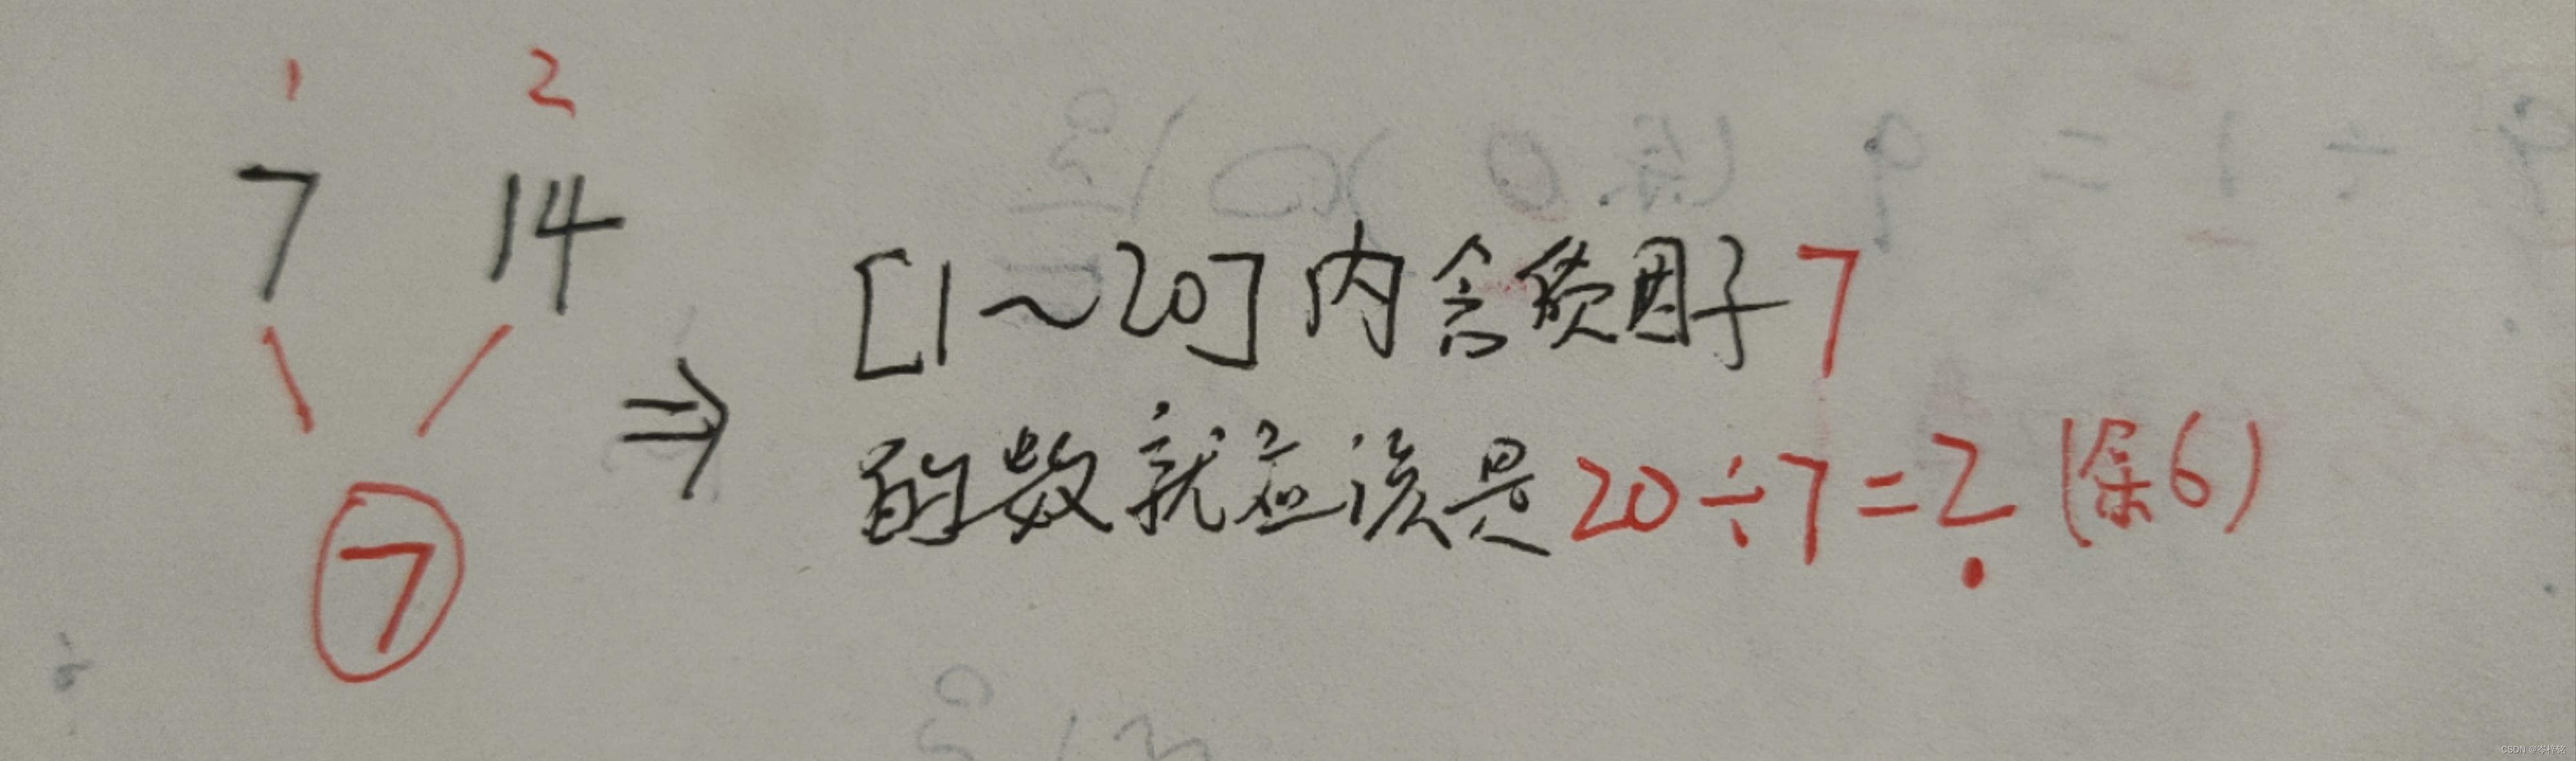 1 2
7 14
7
⇒
[1~20]内含质因子7
的数就应该是20÷7=2(余6)
CSDN @岑梓铭